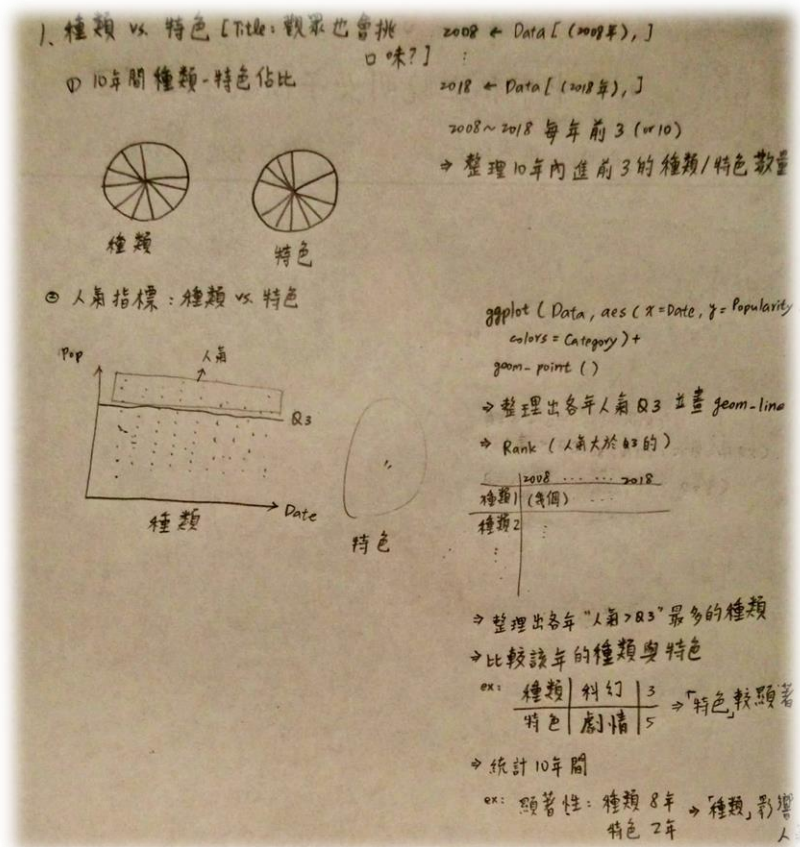 1、種類 vs. 特色 [Title: 觀眾也會挑
口味?]
① 10年間種類-特色佔比
種類
特色
② 人氣指標：種類 vs. 特色
Pop
人氣
Q3
Date
種類
特色
2008 ← Data[(2008年),]
:
2018 ← Data[(2018年),]
2008~2018 每年前3(or10)
⇒ 整理10年內進前3的種類/特色數量
ggplot(Data, aes(x=Date, y=Popularity
colors=Category)+
geom-point()
⇒ 整理出各年人氣Q3 並畫 geom-line
⇒ Rank (人氣大於Q3的)
2008 ... ... 2018
種類1 (幾個) ...
種類2 :
:
⇒ 整理出各年"人氣>Q3"最多的種類
⇒ 比較該年的種類與特色
ex: 種類 | 科幻 | 3 ⇒「特色」較顯著
特色 | 劇情 | 5
⇒ 統計10年間
ex: 顯著性: 種類 8年 ⇒「種類」影響
特色 2年 人